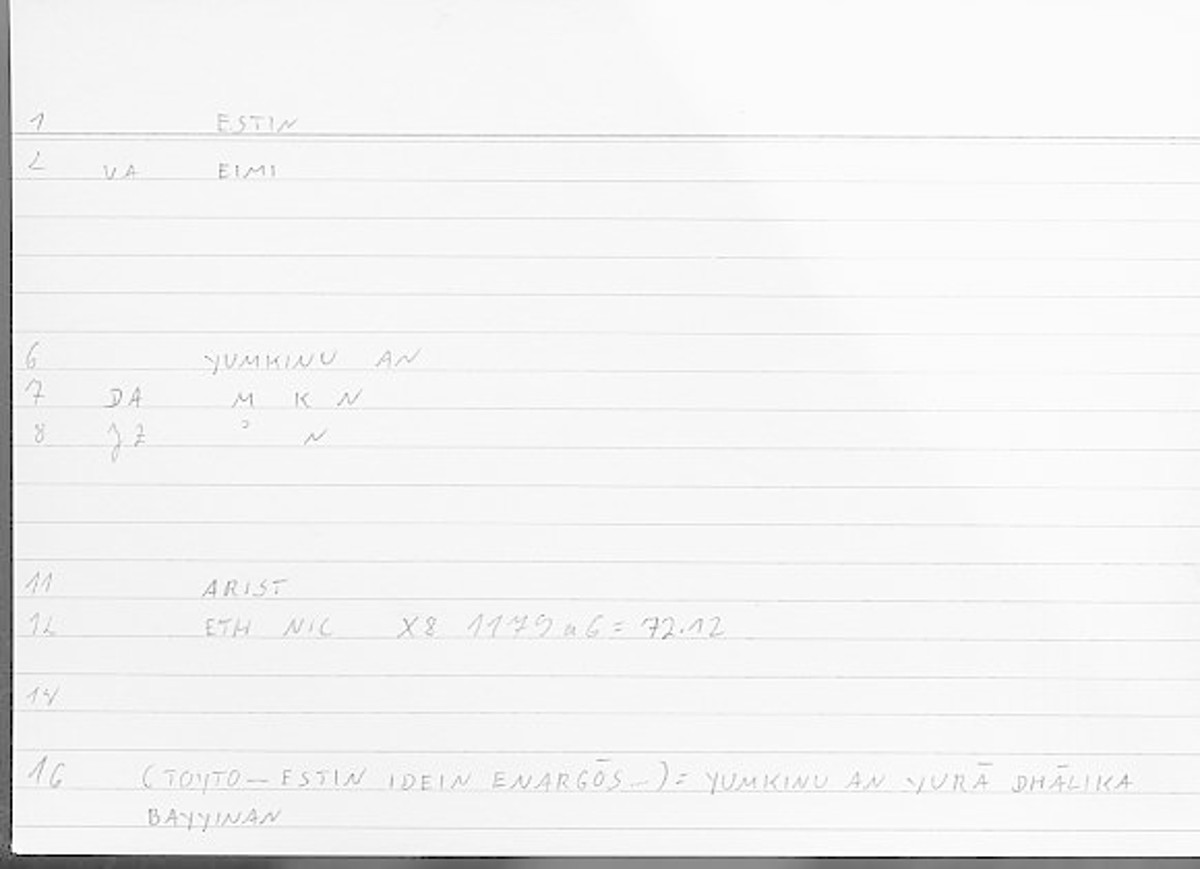 1 ESTIN
2 VA EIMI
6 YUMKINU AN
7 DA M K N
8 ʾ N
11 ARIST
12 ETH NIC X8 1179 a 6 = 72.12
14
16 (TOYTO — ESTIN IDEIN ENARGŌS —) = YUMKINU AN YURĀ DHĀLIKA
BAYYINAN